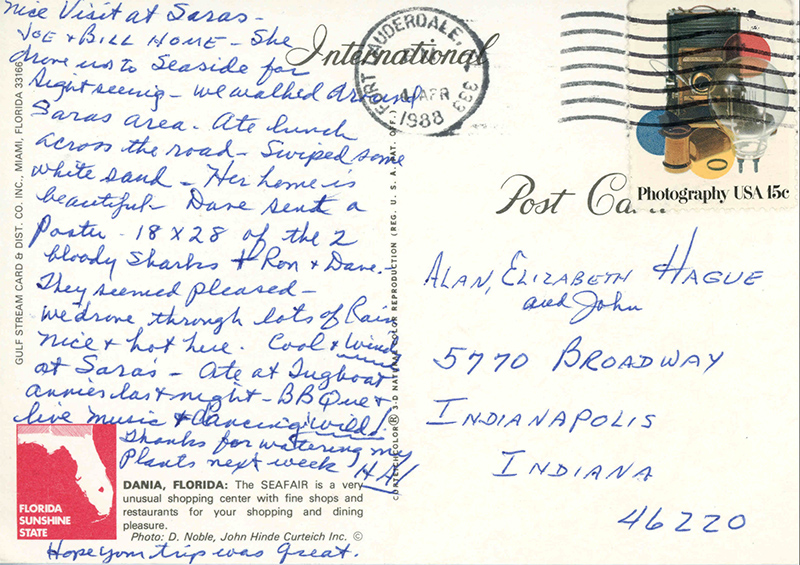 Nice Visit at Saras -
JOE + BILL HOME - She
drove us to Seaside for
Sightseeing - we walked around
Saras area. Ate lunch
across the road - Swiped some
white sand - Her home is
beautiful - Dave sent a
Poster - 18 X 28 of the 2
bloody Sharks + Ron + Dave -
They seemed pleased -
we drove through lots of Rain
Nice + hot here. Cool + Wind
at Sara's - Ate at Tugboat
annies last night - BBQue +
live music + Dancing wild!
Thanks for watering my
Plants next week HA!
Hope your trip was great.
GULF STREAM CARD & DIST. CO. INC., MIAMI, FLORIDA 33166
FLORIDA
SUNSHINE
STATE
DANIA, FLORIDA: The SEAFAIR is a very
unusual shopping center with fine shops and
restaurants for your shopping and dining
pleasure.
Photo: D. Noble, John Hinde Curteich Inc. ©
CURTEICHCOLOR® 3-D NATURAL COLOR REPRODUCTION (REG. U. S. A. PAT. OF
International
FORT LAUDERDALE, 333
APR
1988
Photography USA 15c
Post Card
ALAN, ELIZABETH HAGUE
and John
5770 BROADWAY
INDIANAPOLIS
INDIANA
46220